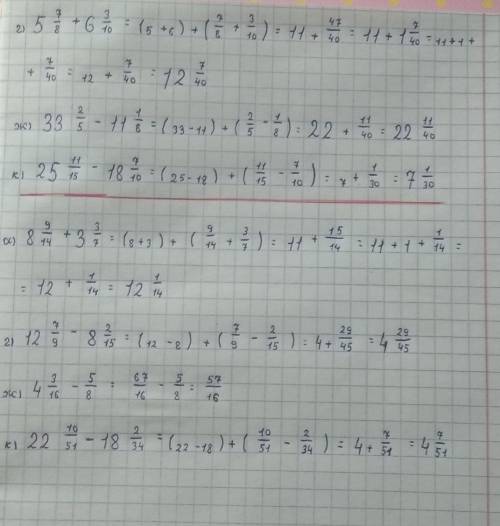 г) 5 7/8 + 6 3/10 = (5 + 6) + (7/8 + 3/10) = 11 + 47/40 = 11 + 1 7/40 = 11 + 1 +
+ 7/40 = 12 + 7/40 = 12 7/40
ж) 33 2/5 - 11 1/8 = (33 - 11) + (2/5 - 1/8) = 22 + 11/40 = 22 11/40
к) 25 11/15 - 18 7/10 = (25 - 18) + (11/15 - 7/10) = 7 + 1/30 = 7 1/30
а) 8 9/14 + 3 3/7 = (8 + 3) + (9/14 + 3/7) = 11 + 15/14 = 11 + 1 + 1/14 =
= 12 + 1/14 = 12 1/14
г) 12 7/9 - 8 2/15 = (12 - 8) + (7/9 - 2/15) = 4 + 29/45 = 4 29/45
ж) 4 3/16 - 5/8 = 67/16 - 5/8 = 57/16
к) 22 10/51 - 18 2/34 = (22 - 18) + (10/51 - 2/34) = 4 + 7/51 = 4 7/51